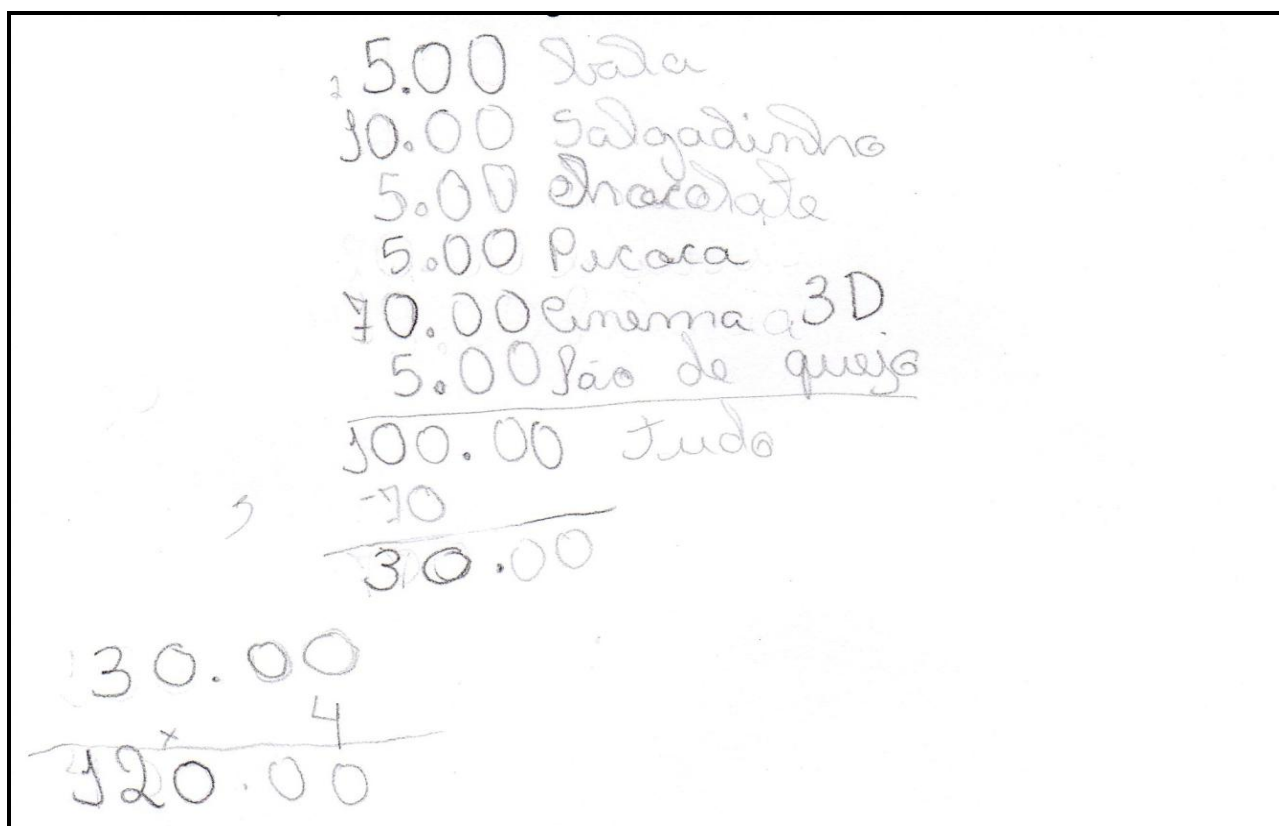 5.00 bala
10.00 Salgadinho
5.00 chocolate
5.00 Picoca
70.00 Cinema a 3D
5.00 Pão de quejo
100.00 Tudo
-70
30.00
30.00
x 4
120.00